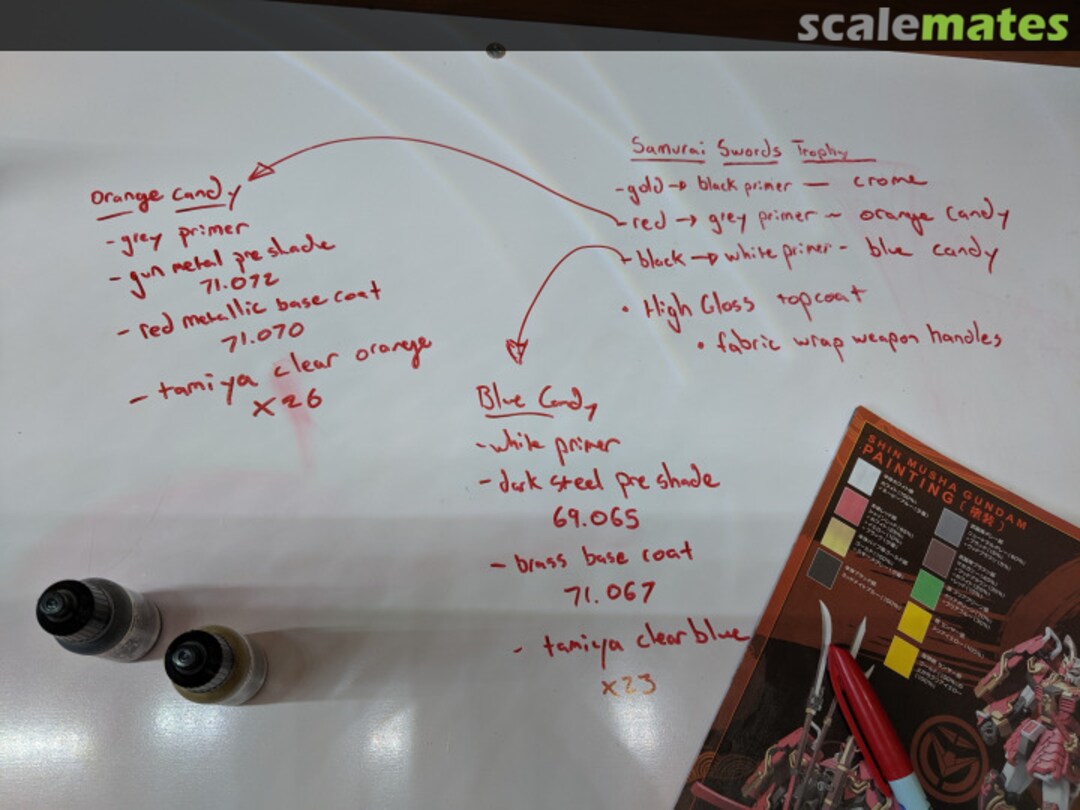 scalemates
Samurai Swords Trophy
- gold → black primer — crome
- red → grey primer - orange candy
- black → white primer - blue candy
• High Gloss topcoat
• fabric wrap weapon handles
Orange Candy
- grey primer
- gun metal pre shade
71.072
- red metallic base coat
71.070
- tamiya clear orange
X26
Blue Candy
- white primer
- dark steel pre shade
69.065
- brass base coat
71.067
- tamiya clear blue
X23
SHIN MUSHA GUNDAM
PAINTING